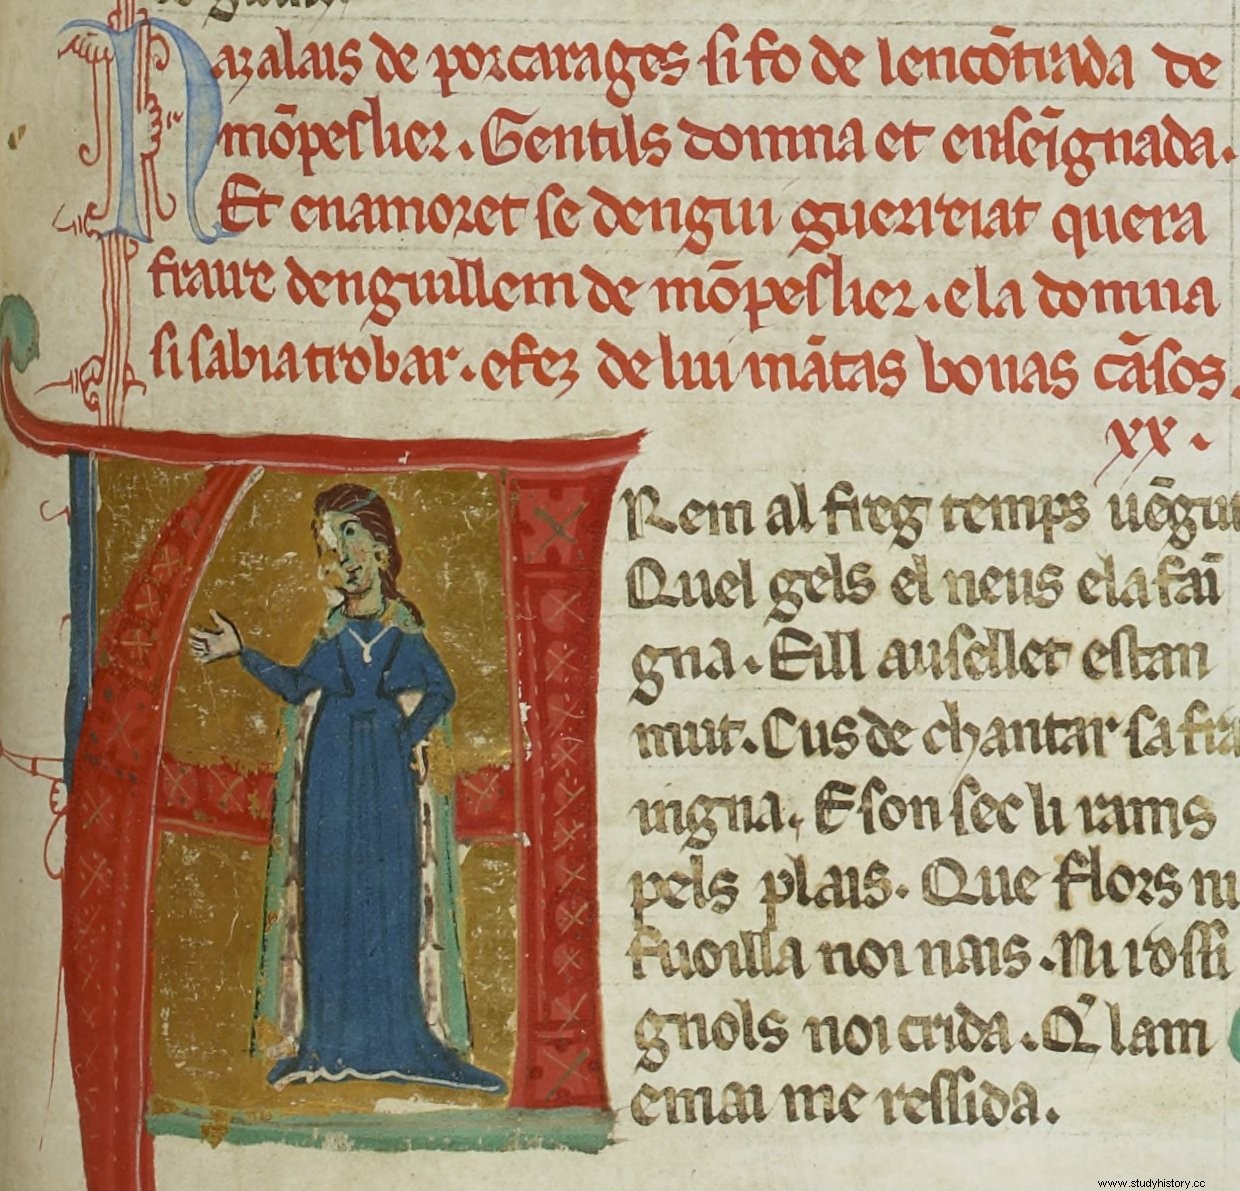 Nazalais de porcarages si fo de lencõtrada de
mõpeslier. Gentils domna et enseĩgnada.
Et enamoret se dengui guerreiat quera
fraire denguillem de mõpeslier. e la domna
si sabia trobar. e fez de lui mãtas bonas cãsos.
xx.
ARem al freg temps uẽgut
Quel gels el neus e la faĩ
gna. Eill ausellet estan
mut. Cus de chantar sa fra
nigna. E son sec li rams
pels plais. Que flors ni
fuoilla noi nais. Ni rossi
gnols noi crida. Q̃ lam
e mai me ressida.
www.studyhistory.cc